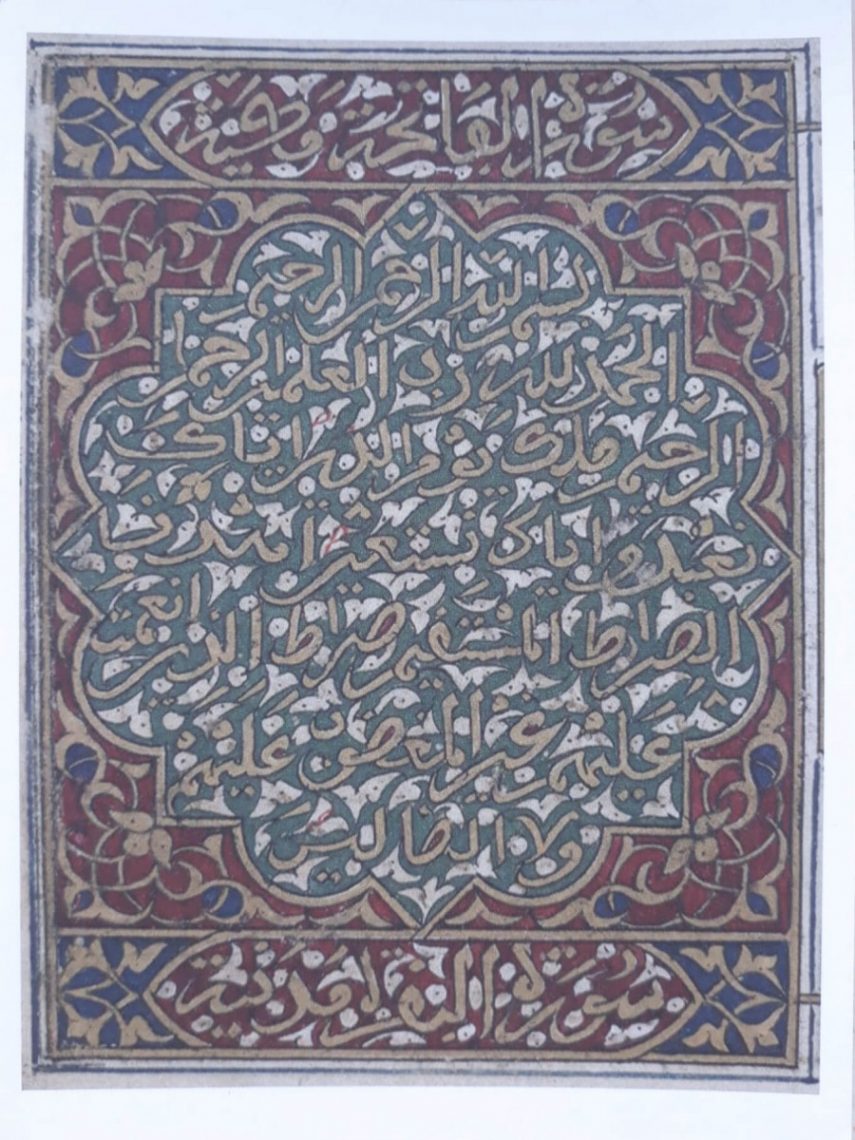 سورة الفاتحة مكية
بسم الله الرحمن الرحيم
الحمد لله رب العلمين الرحمن
الرحيم ملك يوم الدين اياك
نعبد واياك نستعين اهدنا
الصراط المستقيم صراط الذين انعمت
عليهم غير المغضوب عليهم
ولا الضالين
سورة البقرة مدنية